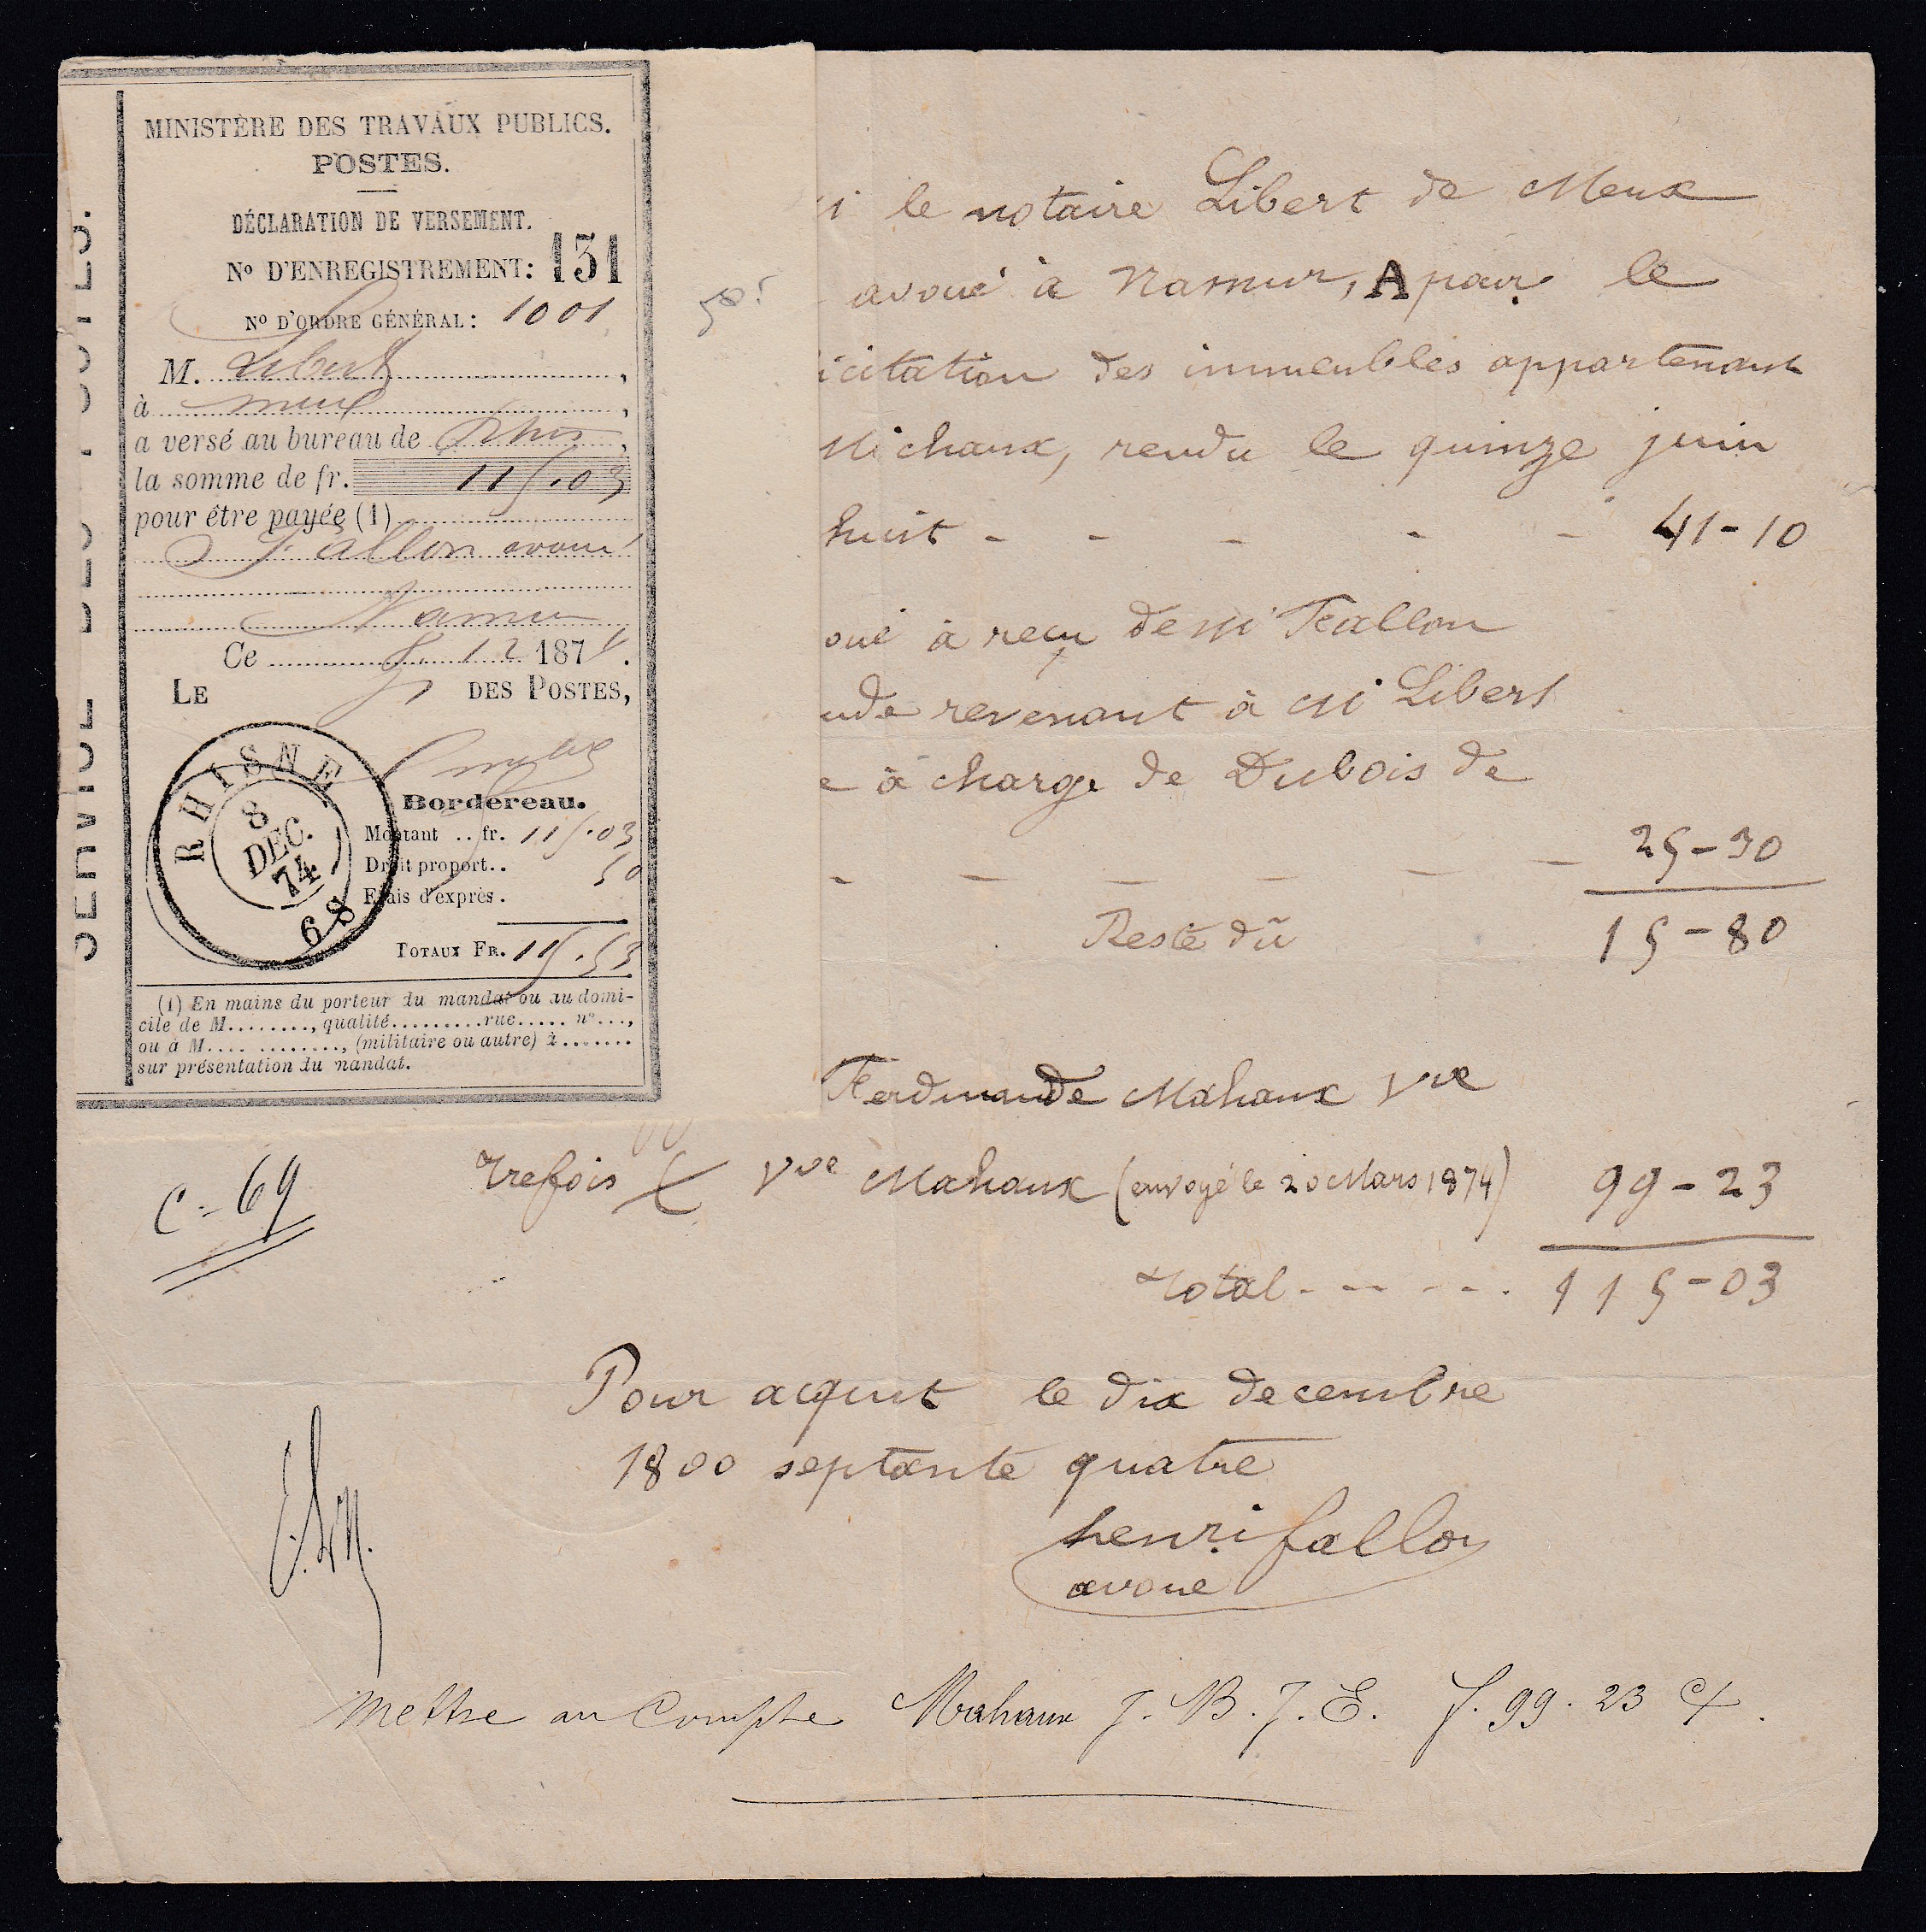 SERVICE DES POSTES.
MINISTÈRE DES TRAVAUX PUBLICS.
POSTES.
DÉCLARATION DE VERSEMENT.
No D'ENREGISTREMENT: 131
No D'ORDRE GÉNÉRAL: 1001
M. Libert,
à meux,
a versé au bureau de Rhis,
la somme de fr. 115.03
pour être payée (1)
à Fallon avoué
Namur
Ce 8. 12 1874.
LE DES POSTES,
RHISNE
8
DEC.
74
6 S
Bordereau.
Montant .. fr. 115.03
Droit proport.. 50
Frais d'exprès .
TOTAUX FR. 115.53
(1) En mains du porteur du mandat ou au domi-
cile de M........, qualité.........rue..... no...,
ou à M............., (militaire ou autre) à .......
sur présentation du mandat.
le notaire Libert de Meux
avoué à Namur, A pour le
icitation des immeubles appartenant
Michaux, rendu le quinze juin
huit - - - - - 41-10
oué à reçu de M Feallon
nde revenant à M Libert
e à charge de Dubois de
- - - - - - 25-30
Reste dû 15-80
Ferdinande Mahaux Vve
Trefois C Vve Mahaux (envoyé le 20 Mars 1874) 99-23
Total - - - - - 115-03
C = 69
Pour acquit le dix decembre
1800 septante quatre
henri fallon
avoue
Mettre au Compte Mahaux J. B. J. E. f. 99. 23 Ct.